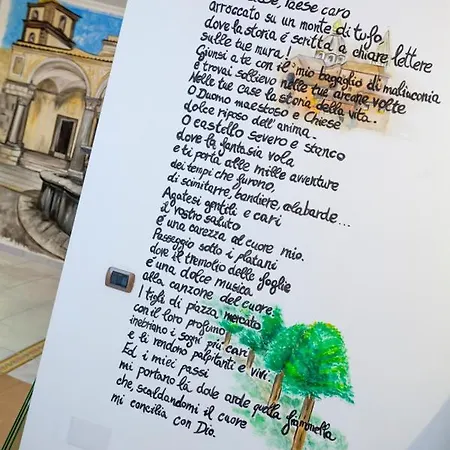 paese caro
arroccato su un monte di tufo
dove la storia è scritta a chiare lettere
sulle tue mura!
Giunsi a te con il mio bagaglio di malinconia
e trovai sollievo nelle tue arcane volte
Nelle tue case la storia della vita.
O Duomo maestoso e Chiese
dolce riposo dell'anima.
O castello severo e stanco
dove la fantasia vola
e ti porta alle mille avventure
dei tempi che furono,
di scimitarre, bandiere, alabarde...
Agatesi gentili e cari
il vostro saluto
è una carezza al cuore mio.
Passeggio sotto i platani
dove il tremolio delle foglie
è una dolce musica
alla canzone del cuore.
I tigli di piazza mercato
con il loro profumo
inebriano i sogni più cari
e li rendono palpitanti e vivi.
Ed i miei passi
mi portano là dove arde quella fiammella
che, scaldandomi il cuore
mi concilia con Dio.